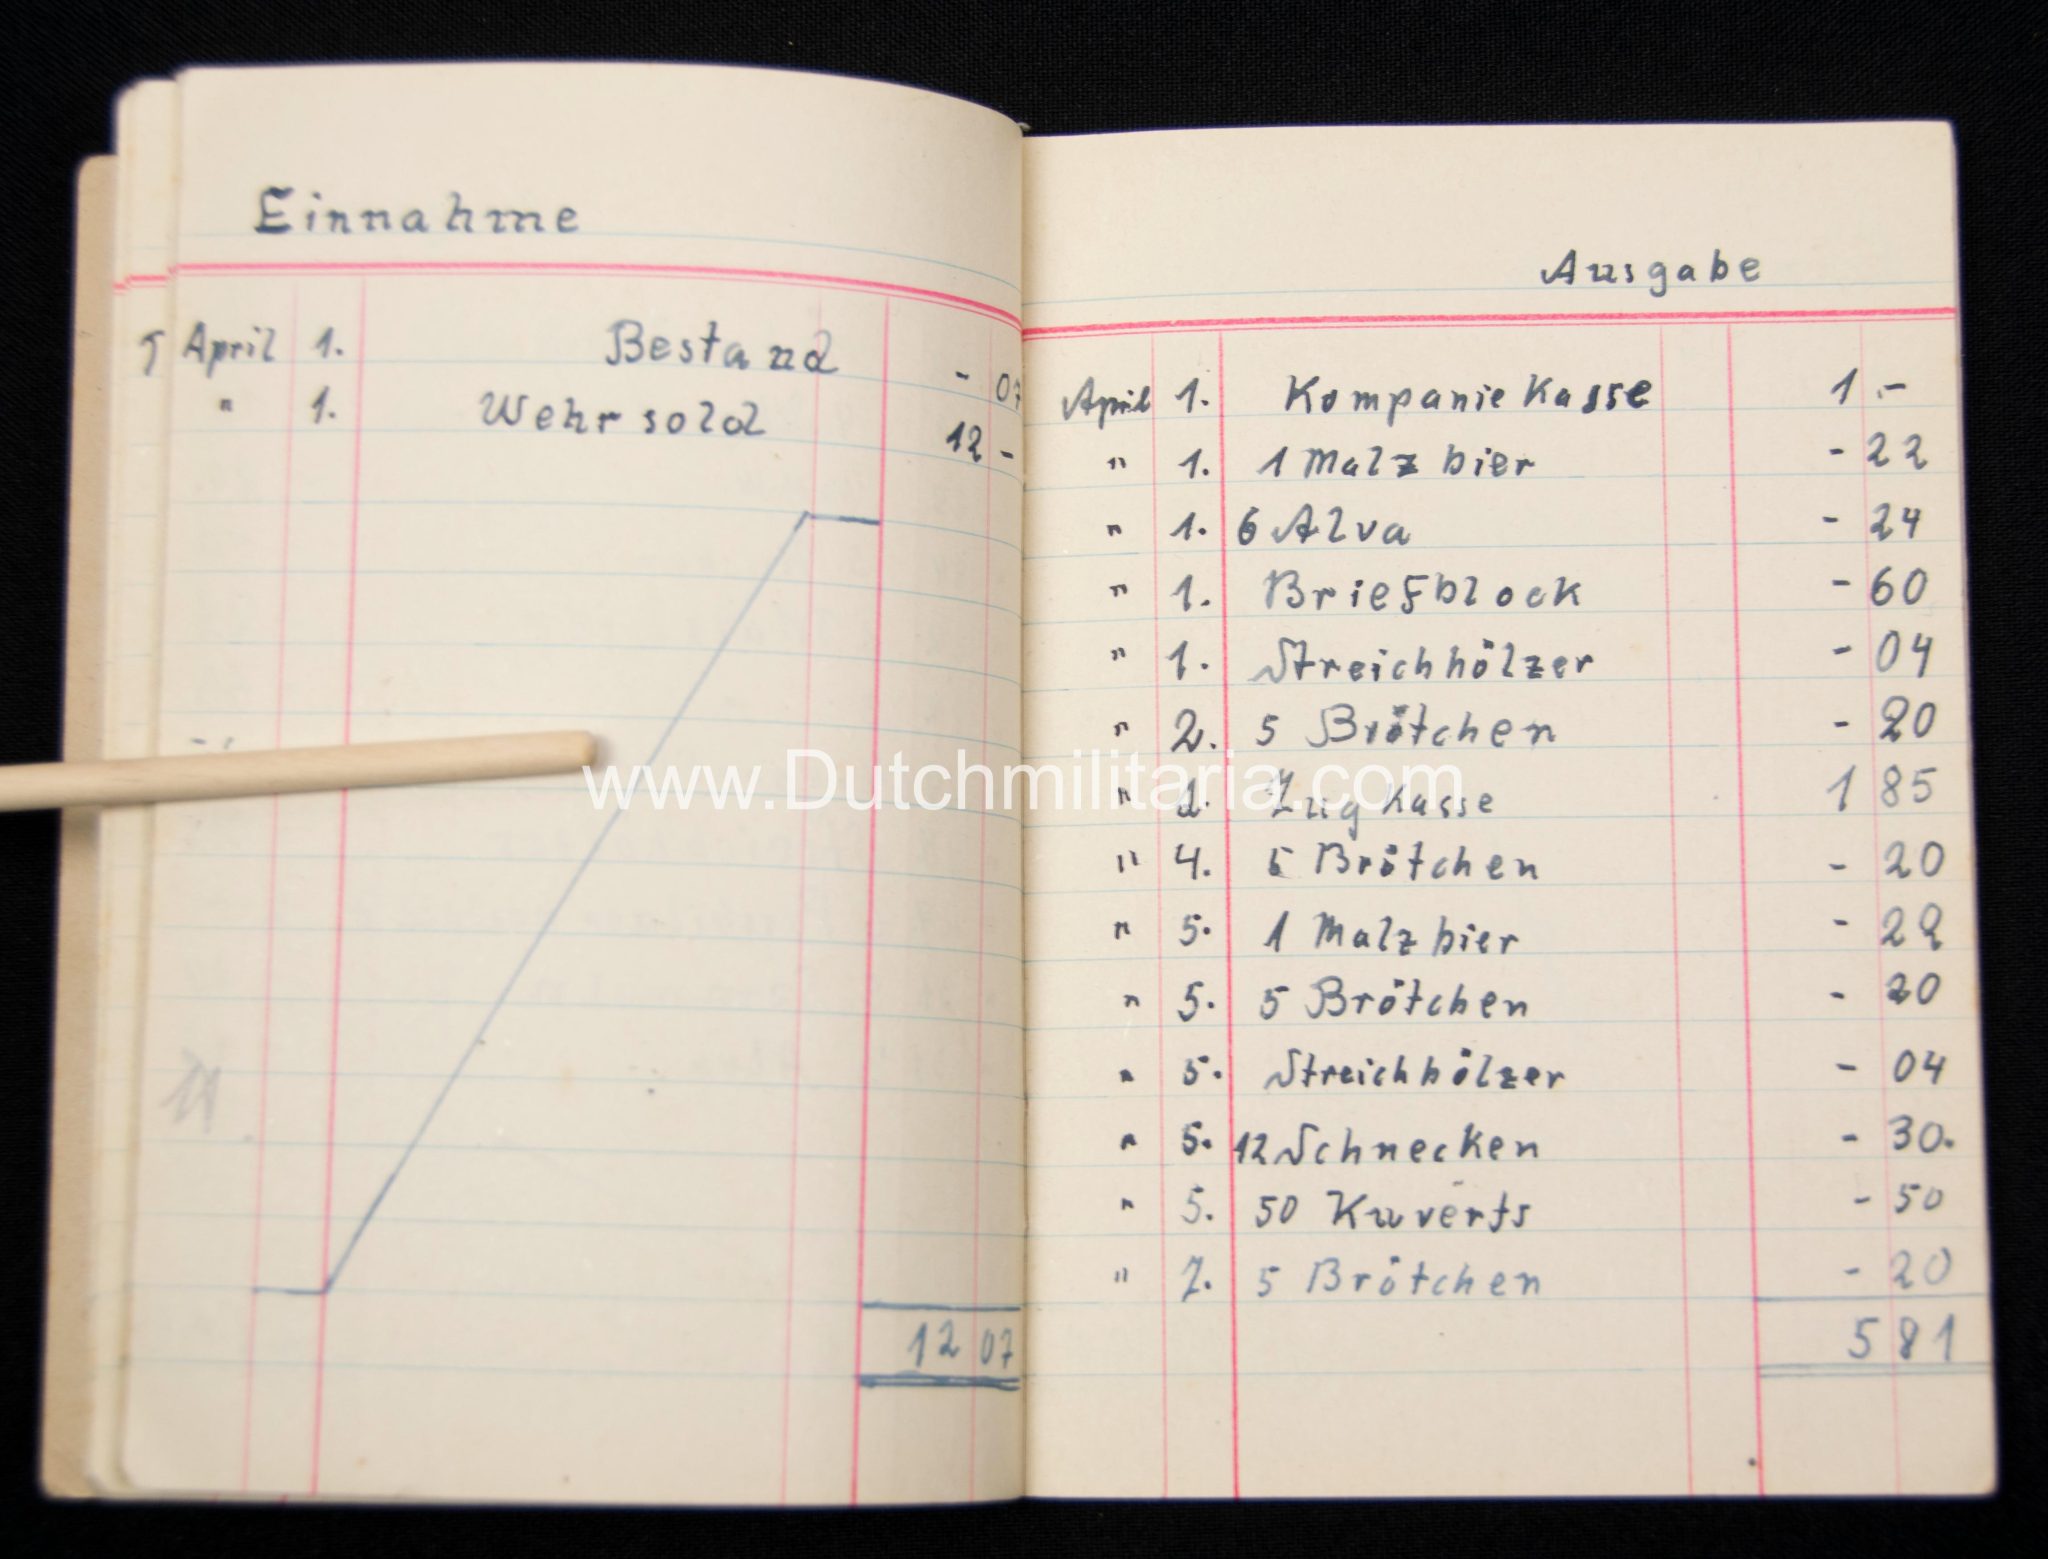 Einnahme
April 1. Bestand - 07
" 1. Wehrsold 12 -
12 07
Ausgabe
April 1. Kompanie Kasse 1.-
" 1. 1 Malzbier - 22
" 1. 6 Alva - 24
" 1. Briefblock - 60
" 1. Streichhölzer - 04
" 2. 5 Brötchen - 20
" 2. Zug Kasse 1 85
" 4. 5 Brötchen - 20
" 5. 1 Malzbier - 22
" 5. 5 Brötchen - 20
" 5. Streichhölzer - 04
" 5. 12 Schnecken - 30.
" 5. 50 Kuverts - 50
" 7. 5 Brötchen - 20
5 81
www.Dutchmilitaria.com